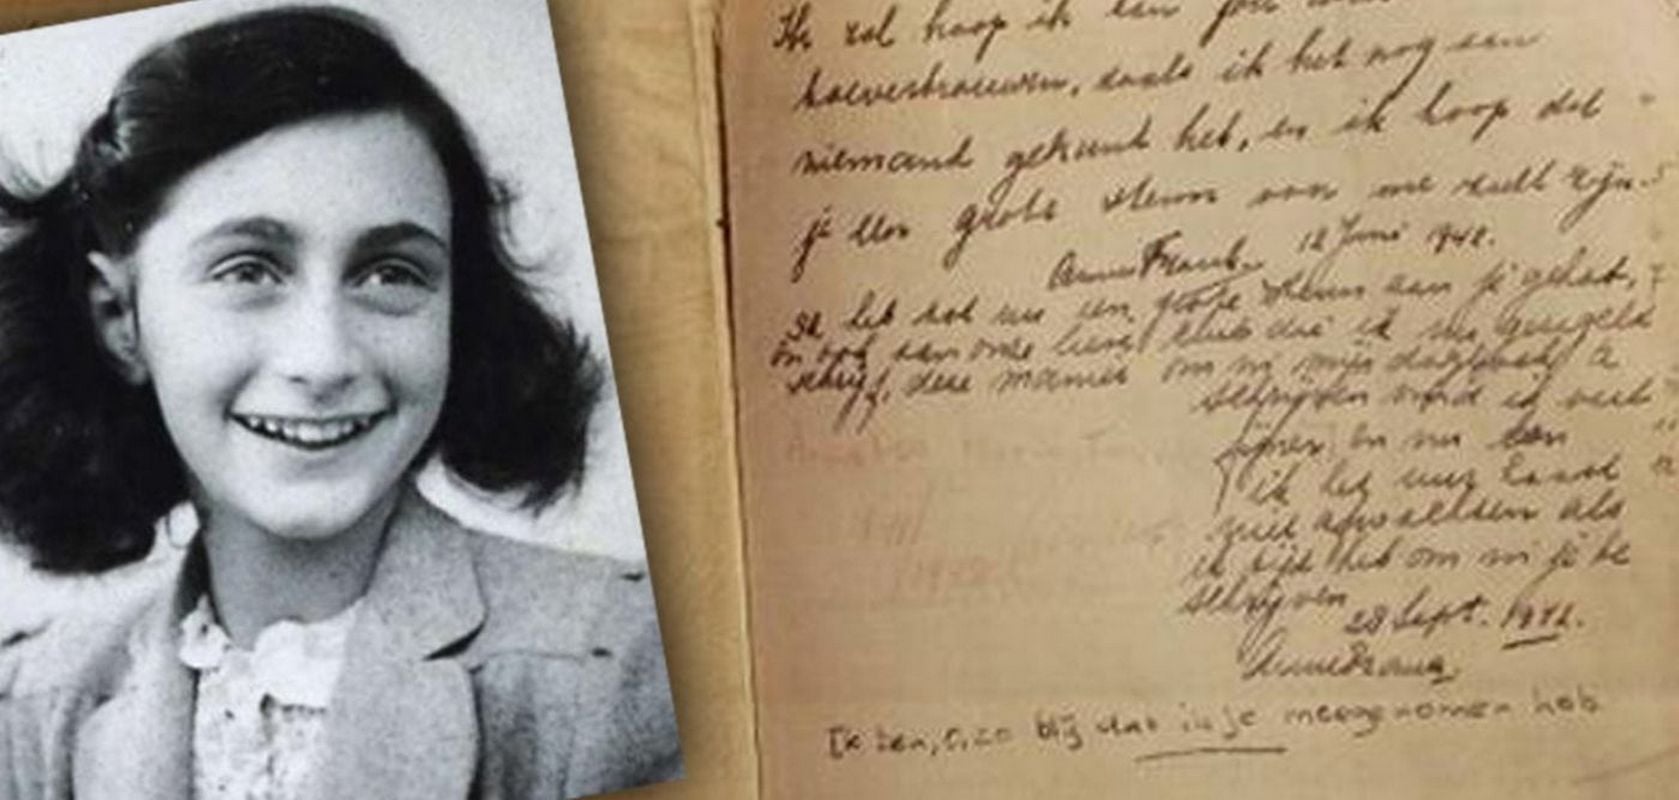 Ik zal hoop ik aan jou
toevertrouwen, zoals ik het nog aan
niemand gekund heb, en ik hoop dat
je een grote steun voor me zult zijn.
Anne Frank. 12 Juni 1942.
Ik heb tot nu een grote steun aan je gehad,
en ook aan onze lieve club die ik nu geregeld
schrijf, deze manier om in mijn dagboek te
schrijven vind ik veel
fijner en nu kan
ik het uur haast
niet afwachten als
ik tijd heb om in je te
schrijven
28 Sept. 1942.
Anne Frank.
Ik ben, o, zo blij dat ik je meegenomen heb